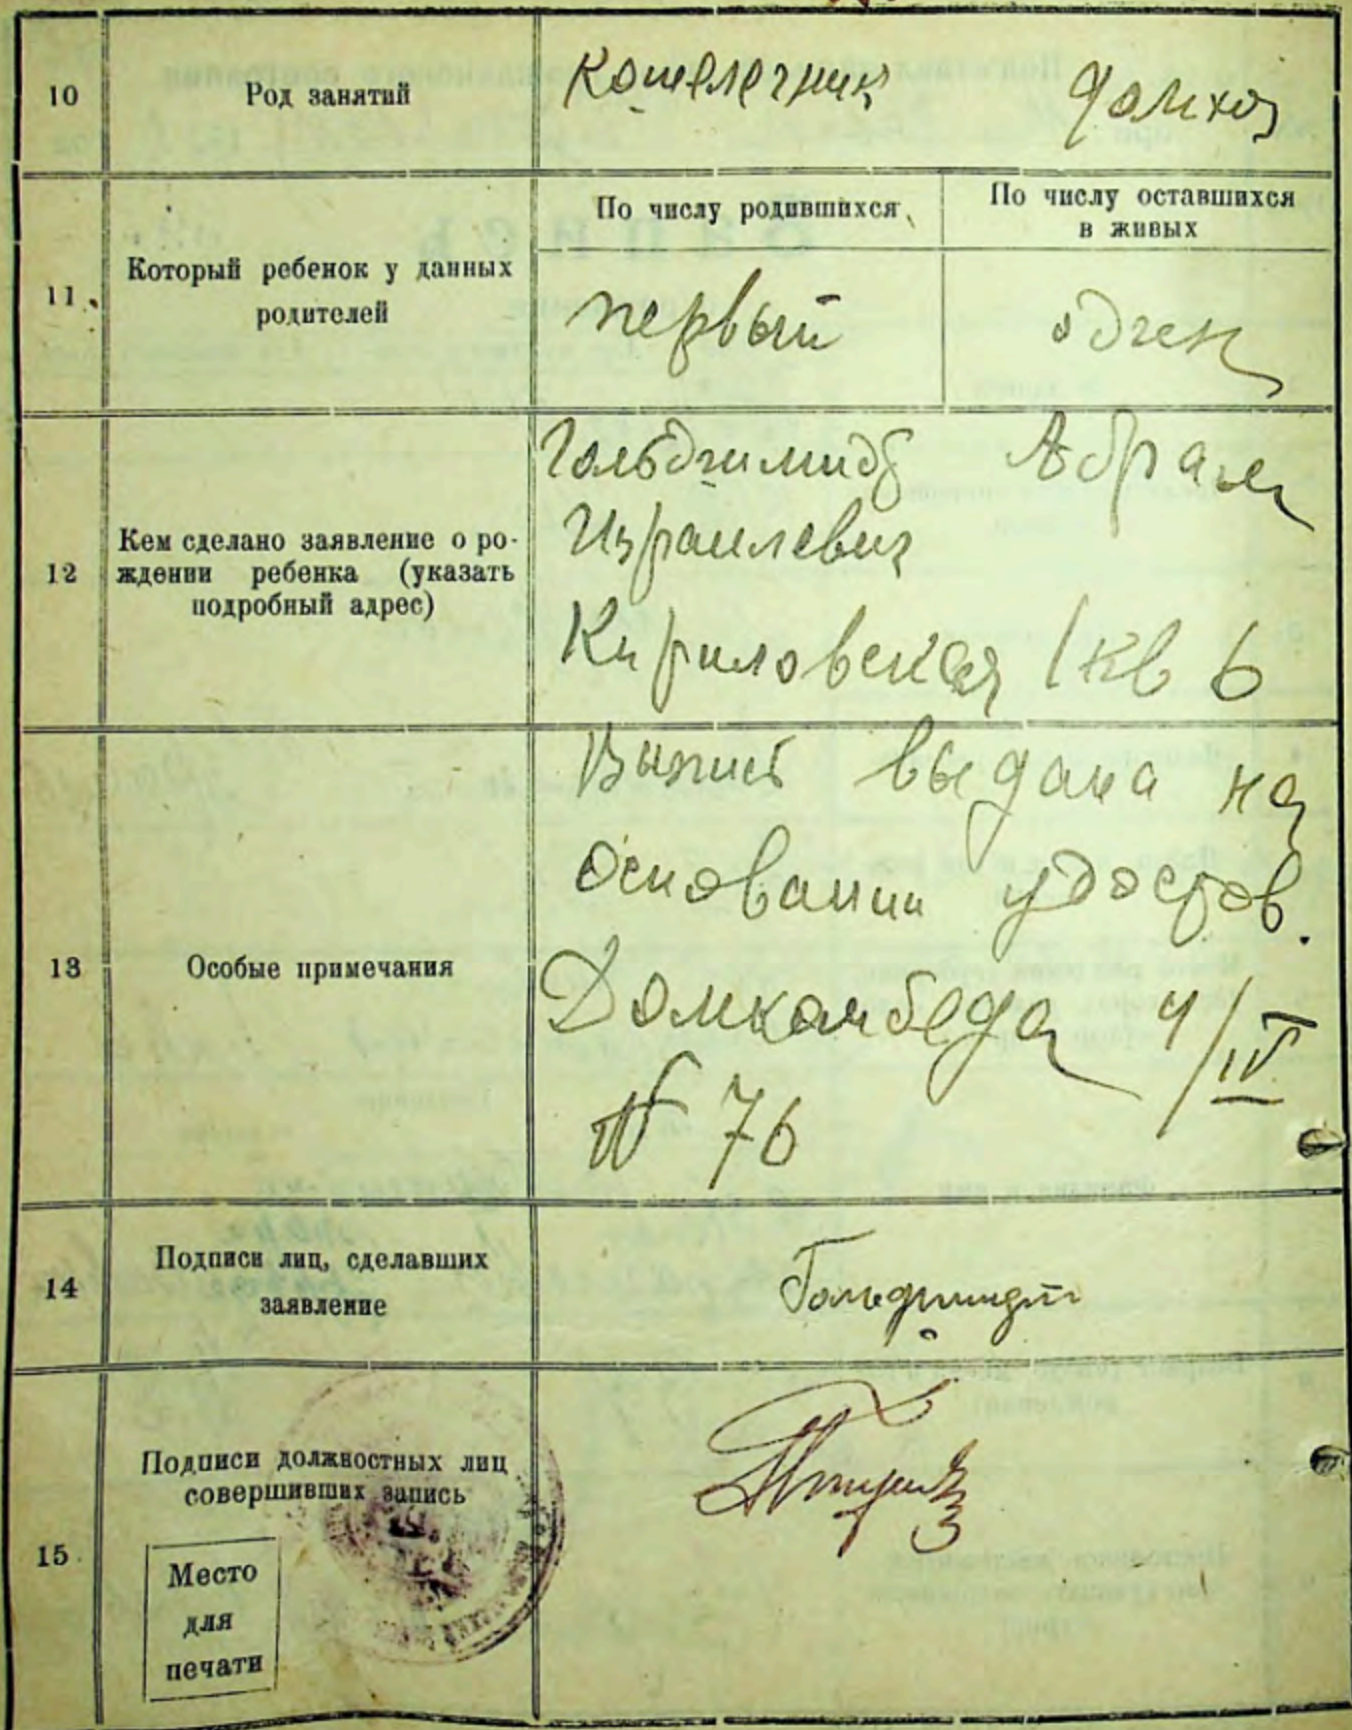 10 Род занятий Кошелечник Домхоз
11. Который ребенок у данных
родителей
По числу родившихся
первый
По числу оставшихся
в живых
один
12 Кем сделано заявление о ро-
ждении ребенка (указать
подробный адрес)
Гольдшмидт Абрам
Израилевич
Кириловская 1 кв 6
13 Особые примечания
Выпись выдана на
основании удостов.
Домкомбеда 4/IV
N 76
14 Подписи лиц, сделавших
заявление
Гольдшмидт
15 Подписи должностных лиц
совершивших запись
Место
для
печати